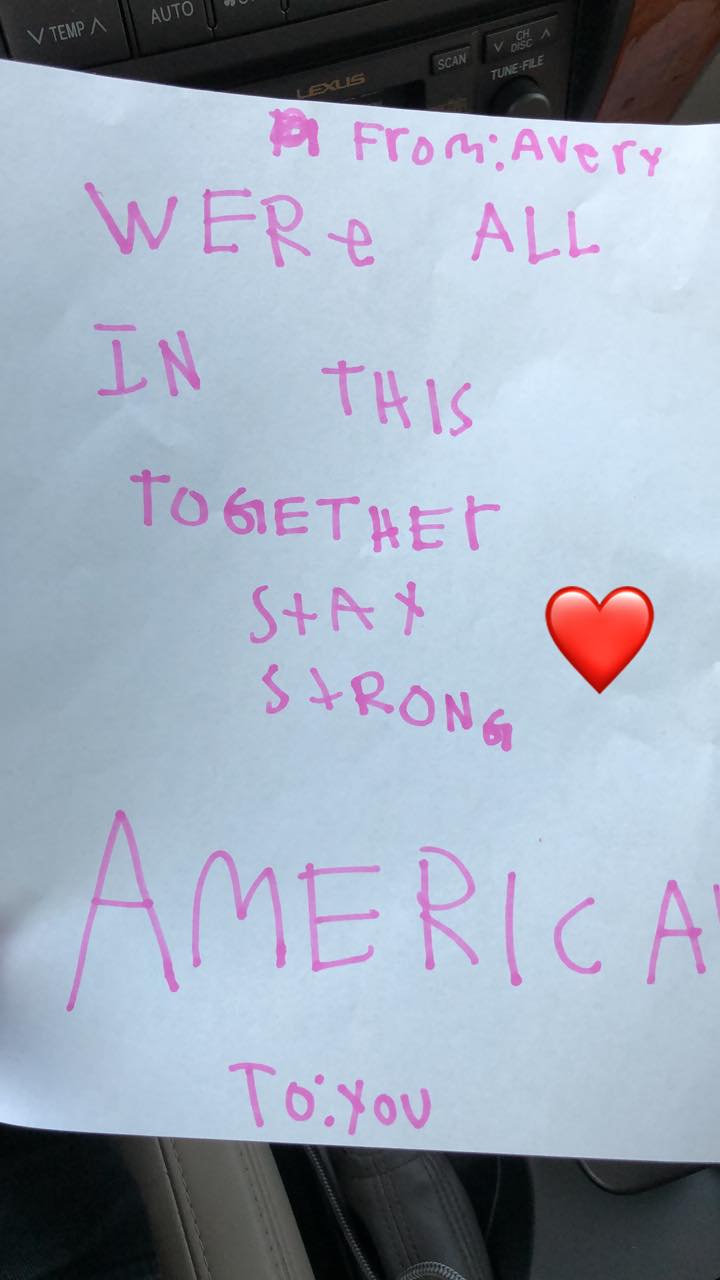 TEMP
AUTO
SCAN
CH
DISC
TUNE·FILE
LEXUS
From: Avery
WERe ALL
IN THIS
TOGETHEr
StAY
StRONG
AMERICA!
To: You